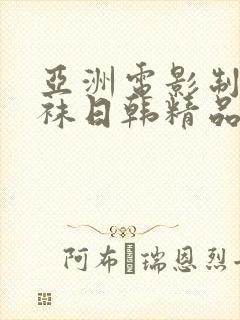 亞洲電影制
袜日韩精品
阿布瑞恩烈